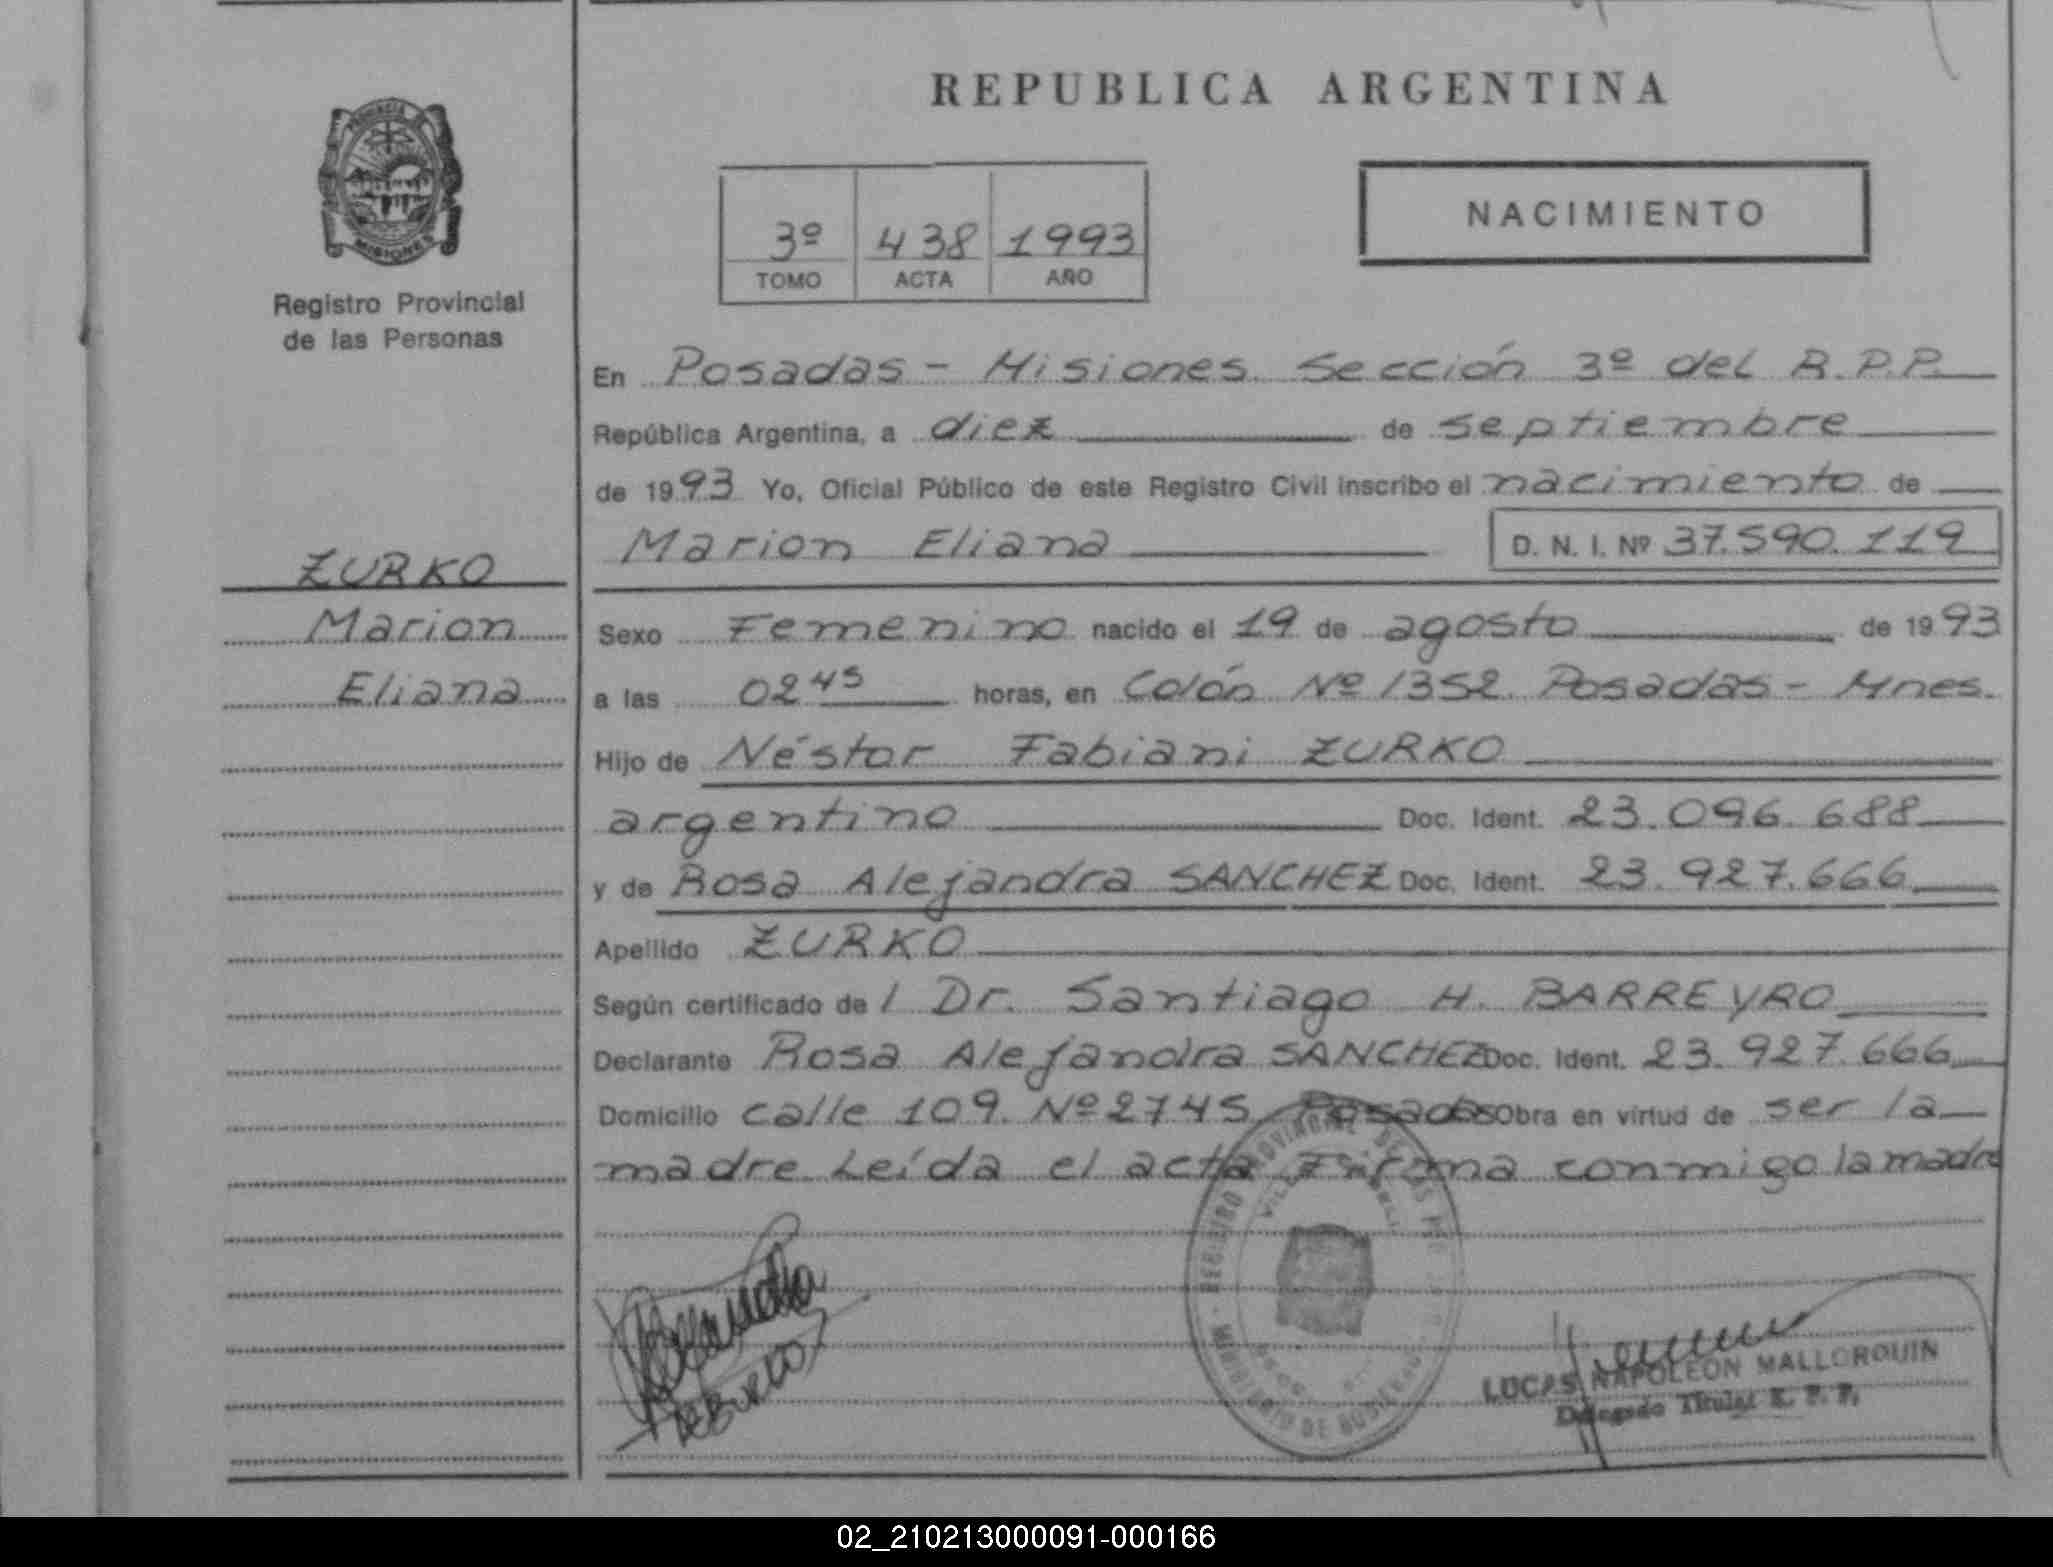 REPUBLICA ARGENTINA
PROVINCIA DE
MISIONES
Registro Provincial
de las Personas
3º 438 1993
TOMO ACTA AÑO
NACIMIENTO
En Posadas - Misiones. Sección 3º del R.P.P.
República Argentina, a diez de septiembre
de 1993 Yo, Oficial Público de este Registro Civil inscribo el nacimiento de
Marion Eliana D. N. I. Nº 37.590.119
ZURKO
Marion
Eliana
Sexo Femenino nacido el 19 de agosto de 1993
a las 02 45 horas, en Colón Nº 1352. Posadas - Mnes.
Hijo de Néstor Fabiani ZURKO
argentino Doc. Ident. 23.096.688
y de Rosa Alejandra SANCHEZ Doc. Ident. 23.927.666
Apellido ZURKO
Según certificado de l Dr. Santiago H. BARREYRO
Declarante Rosa Alejandra SANCHEZ Doc. Ident. 23.927.666
Domicilio calle 109. Nº 2745. Posadas Obra en virtud de ser la
madre. Leída el acta Firma conmigo la madre
REGISTRO PROVINCIAL DE LAS
MINISTERIO DE GOBIERNO
LUCAS NAPOLEON MALLORQUIN
Delegado Titular R. P. P.
02_210213000091-000166